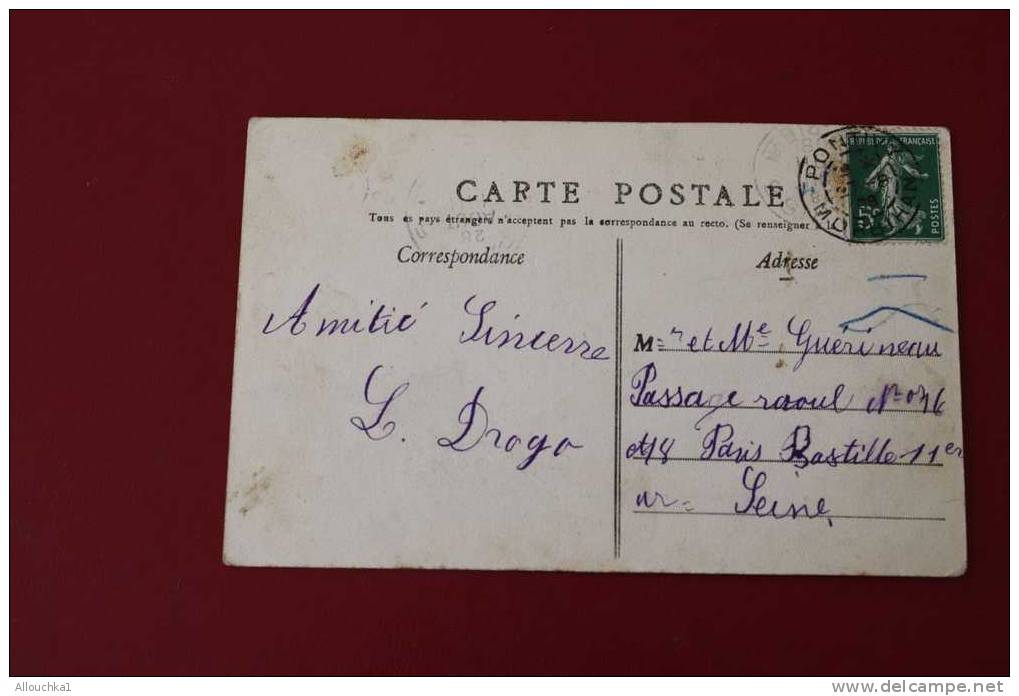 CARTE POSTALE
Tous es pays étrangers n'acceptent pas la correspondance au recto. (Se renseigner
Correspondance
Adresse
Amitié Sincerre
L. Drogo
M= r et Me Guérineau
Passage raoul No
Paris Bastille 11er
ar= Seine
REPUBLIQUE FRANÇAISE
POSTES
PONT
Allouchka1
www.delcampe.net